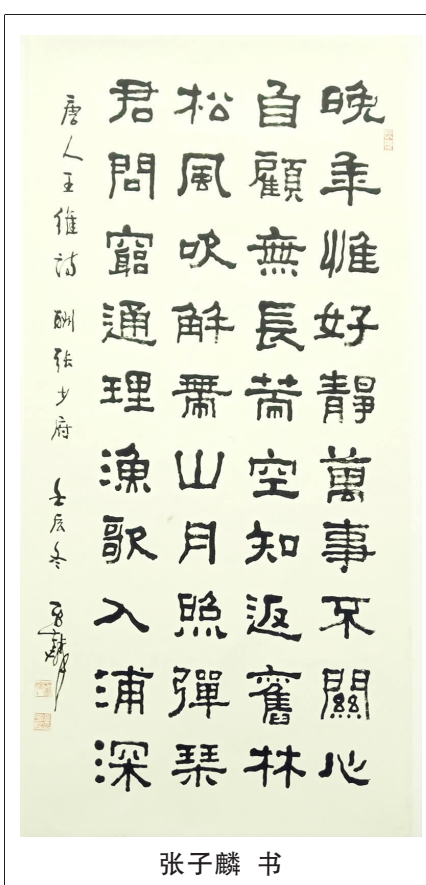 晚年惟好靜萬事不關心
自顧無長策空知返舊林
松風吹解帶山月照彈琴
君問窮通理漁歌入浦深
唐人王維詩 酬張少府 壬辰冬 子麟
张子麟 书